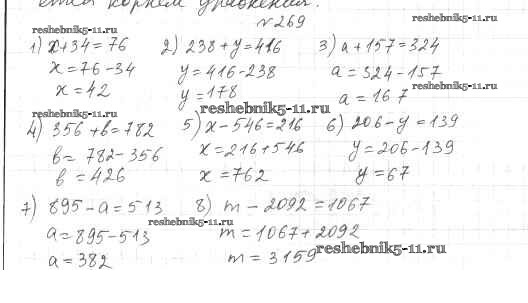 этой корнем уравнения.
№269
reshebnik5-11.ru
1) x+34=76 2) 238+y=416 3) a+157=324
x=76-34 y=416-238 a=324-157
x=42 y=178 a=167
reshebnik5-11.ru
reshebnik5-11.ru
reshebnik5-11.ru
4) 356+b=782 5) x-546=216 6) 206-y=139
b=782-356 x=216+546 y=206-139
b=426 x=762 y=67
7) 895-a=513 8) m-2092=1067
reshebnik5-11.ru
a=895-513 m=1067+2092
a=382 m=3159
reshebnik5-11.ru